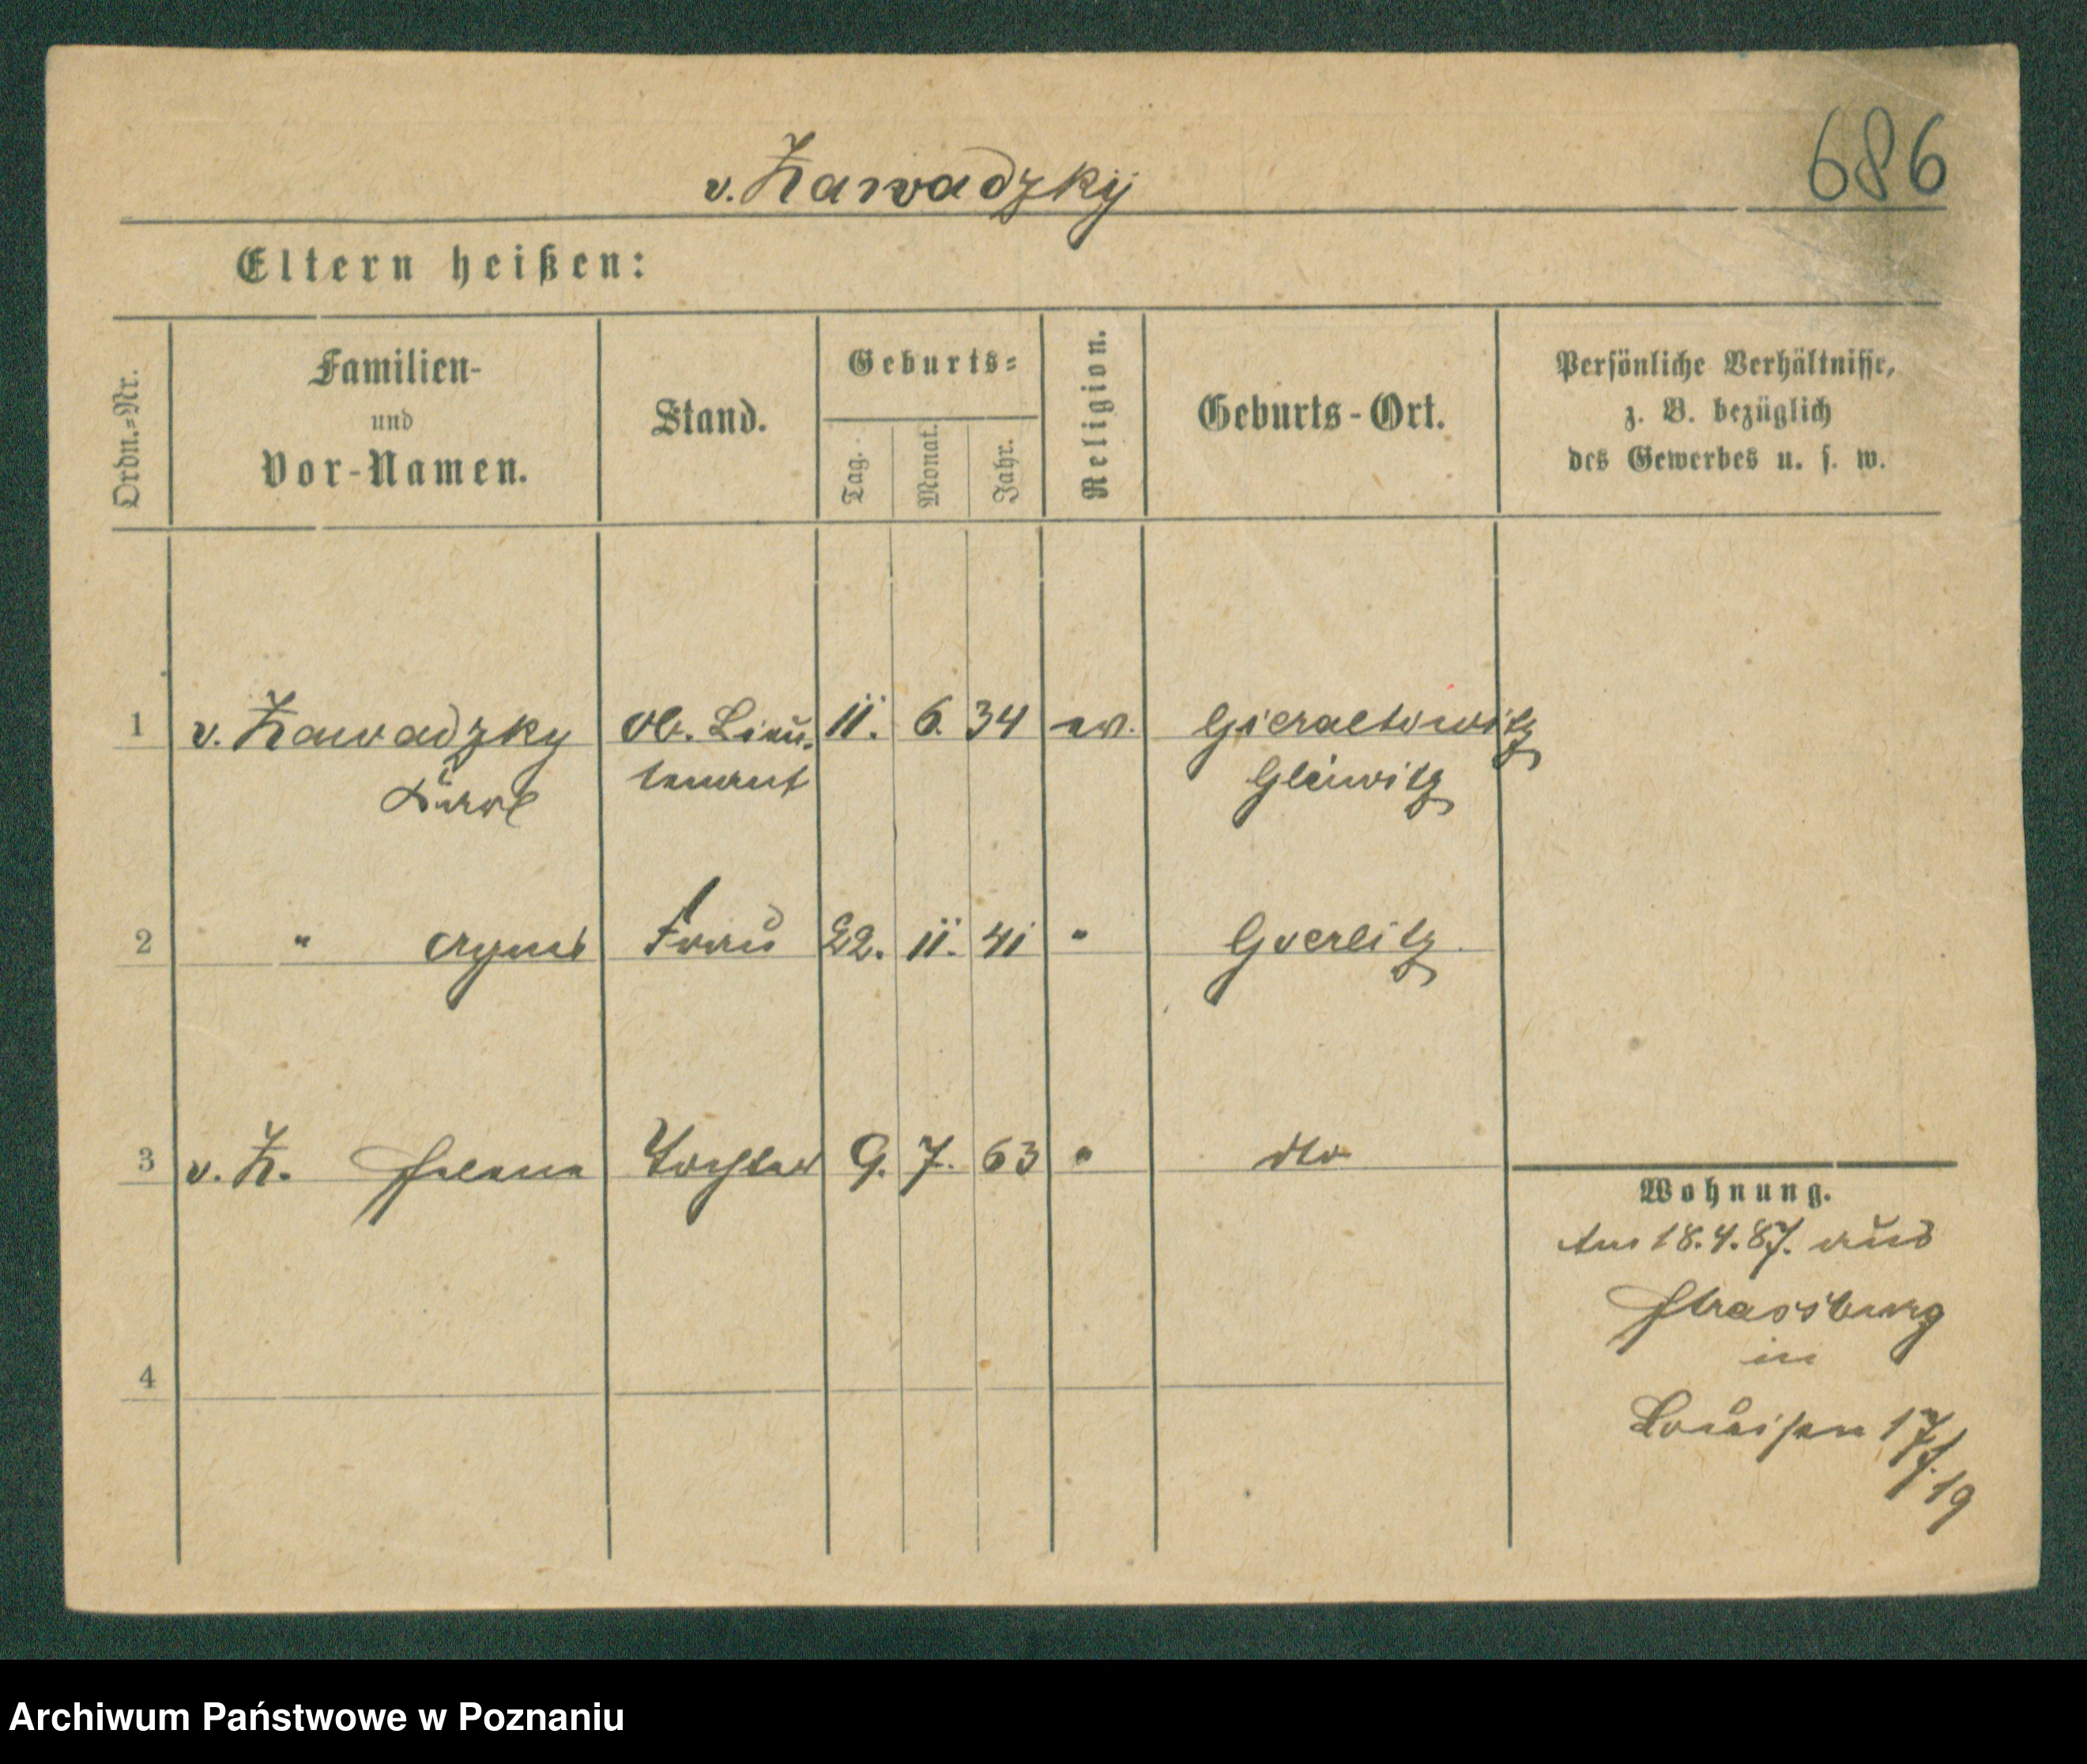 686
v. Zawadzky
Eltern heißen:
Ordn.=Nr.
Familien-
und
Vor-Namen.
Stand.
Geburts=
Tag.
Monat.
Jahr.
Religion.
Geburts-Ort.
Persönliche Verhältnisse,
z. B. bezüglich
des Gewerbes u. s. w.
1 v. Zawadzky Ob. Lieu- 11. 6. 34 ev. Gieraltowitz
tenant Gleiwitz
2 " Agnes Frau 22. 11. 41 " Goerlitz
3 v. Z. Helene Tochter 9. 7. 63 " dto
4
Wohnung.
Am 18.4.87. aus
Strassburg
in
Louisen 17/19
Archiwum Państwowe w Poznaniu